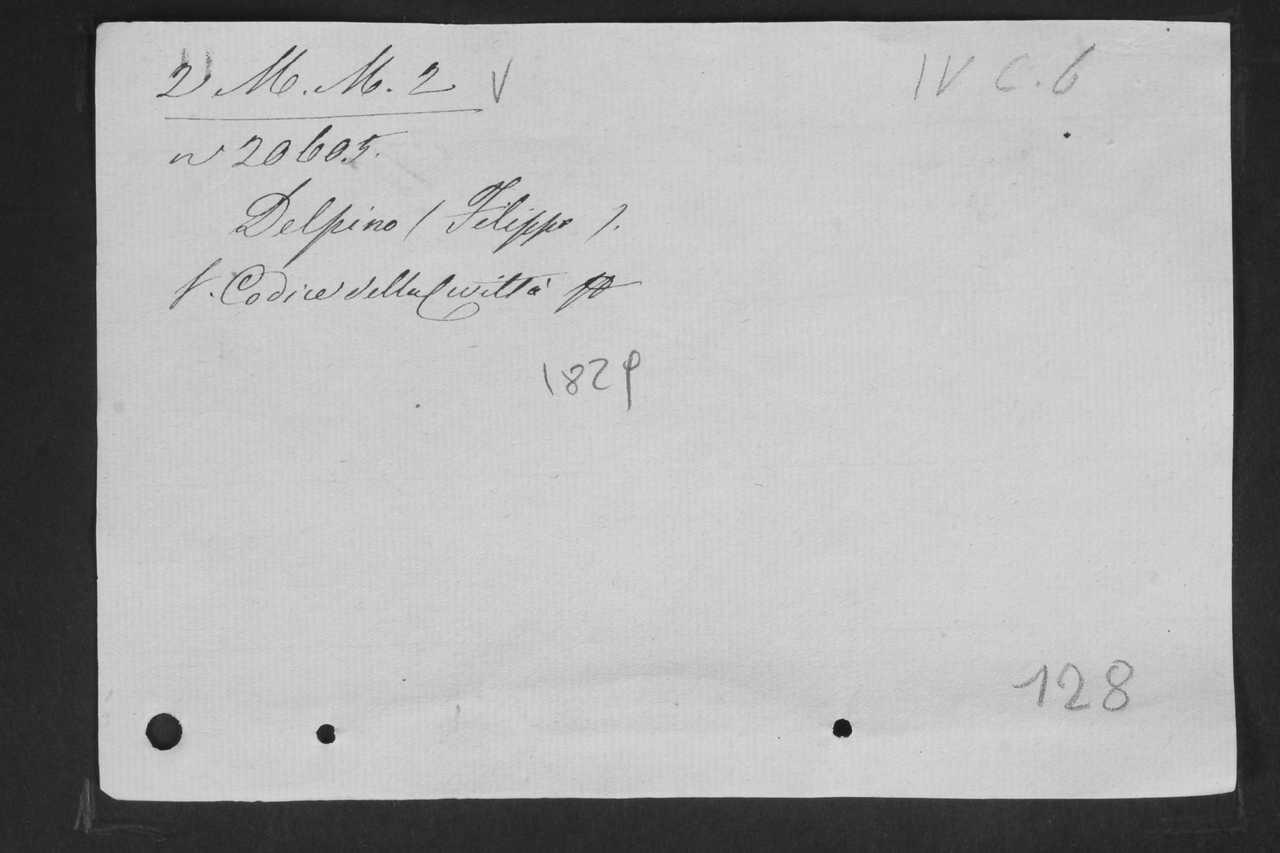 2 M. M. 2 V
IV C. 6
n 20605.
Delpino ( Filippo ).
V. Codice della Civiltà
1829
128